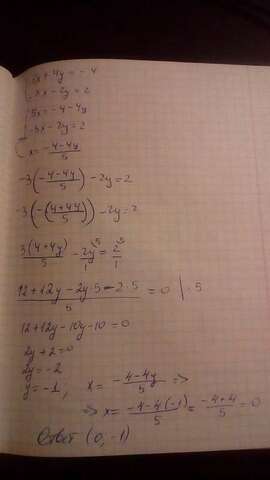 5x+4y=-4
-3x-2y=2
5x=-4-4y
-3x-2y=2
x=\frac{-4-4y}{5}
-3(\frac{-4-4y}{5})-2y=2
-3(-(\frac{4+4y}{5}))-2y=2
\frac{3(4+4y)}{5}-\frac{2y^{5}}{1}=\frac{2^{5}}{1}
\frac{12+12y-2y·5-2·5}{5}=0 |·5
12+12y-10y-10=0
2y+2=0
2y=-2
y=-1, x=\frac{-4-4y}{5} =>
=> x=\frac{-4-4(-1)}{5}=\frac{-4+4}{5}=0
Ответ (0,-1)